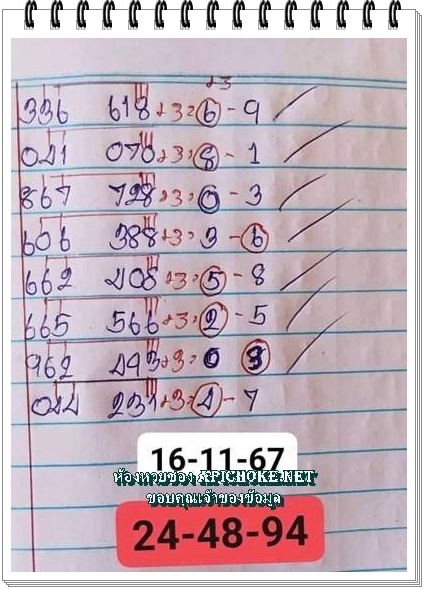 +3
336 618+3=6-9
041 070+3=8-1
867 728+3=0-3
606 388+3=3-6
662 408+3=5-8
665 566+3=2-5
962 493+3=0 3
044 231+3=4-7
16-11-67
ห้องหวยซอง APICHOKE.NET
ขอบคุณเจ้าของข้อมูล
24-48-94